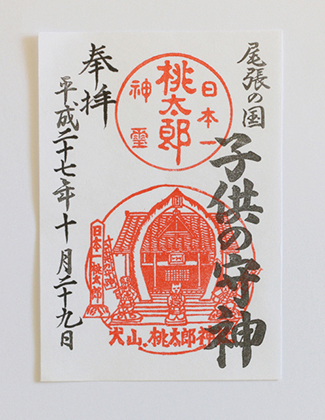 尾張の国
子供の守神
日本一
桃太郎
神霊
犬山 桃太郎神社
奉拝
平成二十七年十月二十九日